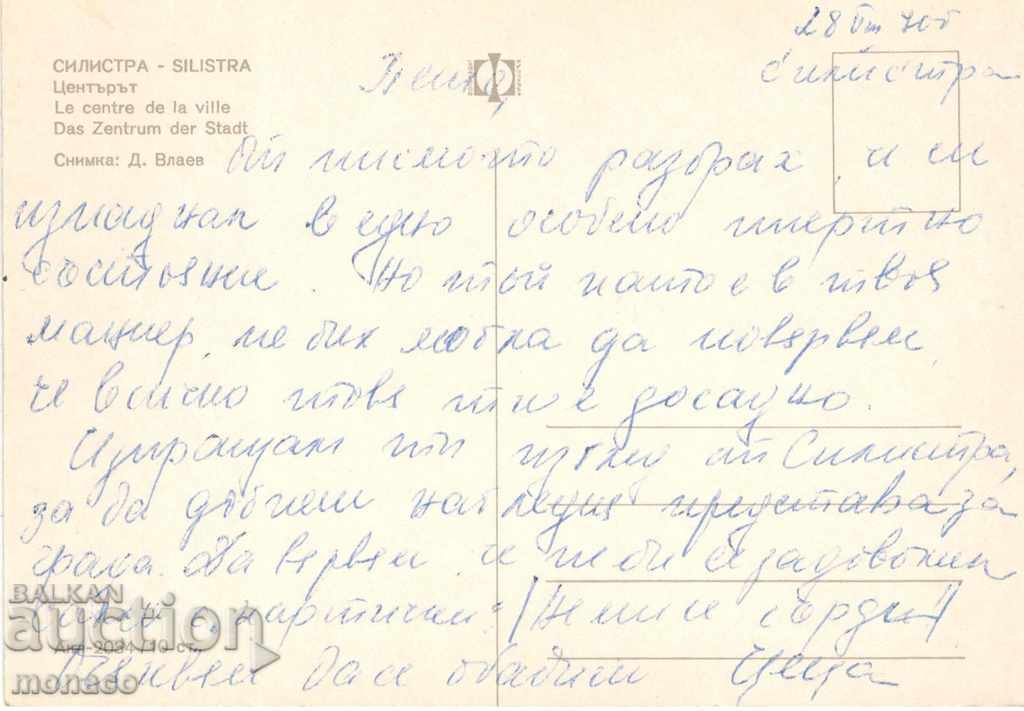 СИЛИСТРА - SILISTRA
Центърът
Le centre de la ville
Das Zentrum der Stadt
Снимка: Д. Влаев
28
Силистра
Пенка,
От писмото разбрах, че си
изпаднал в едно особено инертно
състояние. Но тъй като е в твоя
маниер, не бих могла да повярвам,
че всичко това ти е досадно.
Изпращам ти изглед от Силистра,
за да добиеш нагледна представа за
града. вярвам, че не би се задоволил
само с "картички". (Не ми се сърди!)
да се обадиш Цеца
Акл-2034/10 ст.
BALKAN
auction
moneco